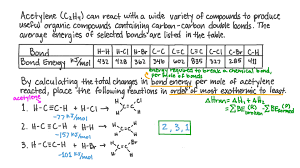 Acetylene (C₂H₂) can react with a wide variety of compounds to produce
useful organic compounds containing carbon-carbon double bonds. The
average energies of selected bonds are listed in the table.
Bond H-H H-Cl H-Br C-C C=C C≡C C-H C-Cl C-Br H-I
Bond Energy kJ/mol 432 428 362 340 602 835 327 285 411
energy required to break a chemical bond,
per mole of bonds
By calculating the total changes in bond energy per mole of acetylene
reacted, place the following reactions in order of most exothermic to least.
acetylene
1. H-C≡C-H + H-Cl →
-77 kJ/mol
2. H-C≡C-H + H-H →
-157 kJ/mol
3. H-C≡C-H + H-Br →
-101 kJ/mol
2, 3, 1